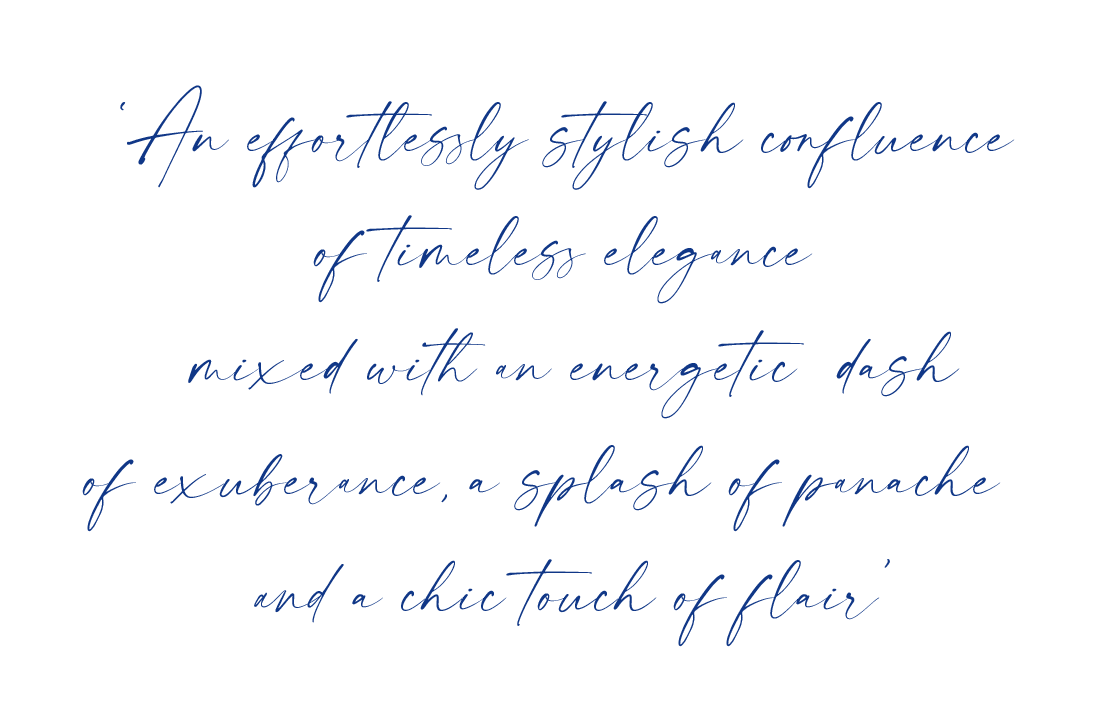 ‘An effortlessly stylish confluence
of timeless elegance
mixed with an energetic dash
of exuberance, a splash of panache
and a chic touch of flair’